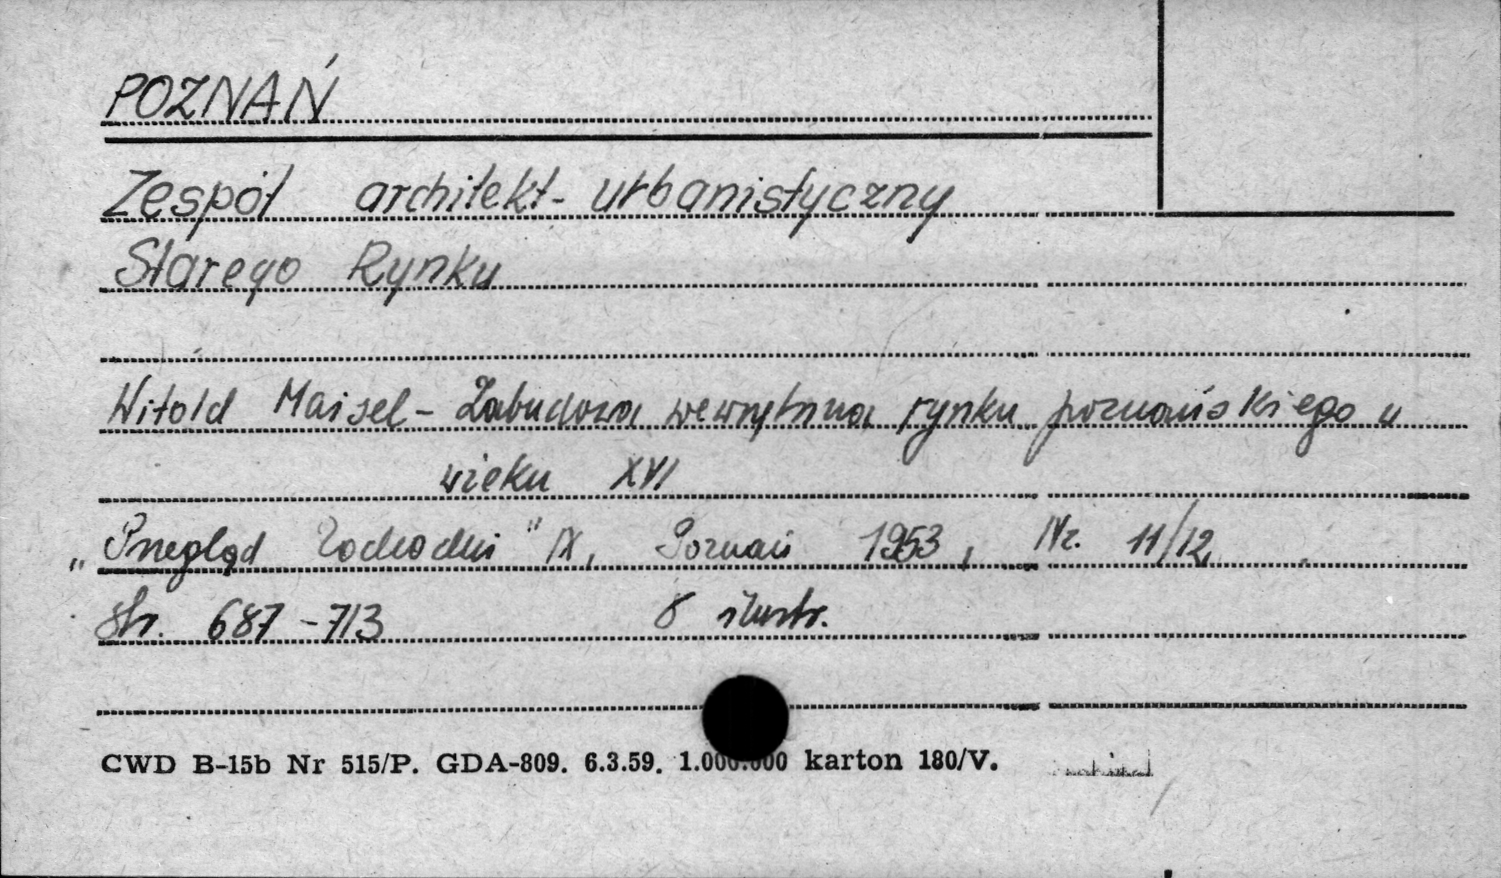 POZNAŃ
Zespół architekt- urbanistyczny
Starego Rynku
Witold Maisel - Zabudowa wewnętrzna rynku poznańskiego w
wieku XVI
„Przegląd Zachodni" IX, Poznań 1953, Nr. 11/12
Str. 687-713 8 ilustr.
CWD B-15b Nr 515/P. GDA-809. 6.3.59. 1.000.000 karton 180/V.